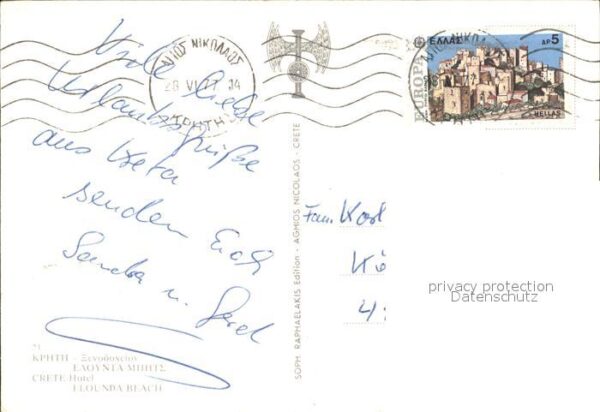 Viele liebe
Urlaubsgrüße
aus Kreta
senden Euch
Sandra u. Gerd
ΑΓΙΟΣ ΝΙΚΟΛΑΟΣ
28 VI 77 14
ΚΡΗΤΗ
ΕΛΛΑΣ ΔΡ 5
EUROPA
HELLAS
SOPH. RAPHAELAKIS Edition - AGHIOS NICOLAOS - CRETE
Fam.
privacy protection
Datenschutz
21
ΚΡΗΤΗ - Ξενοδοχείον
ΕΛΟΥΝΤΑ ΜΠΗΤΣ
CRETE Hotel
ELOUNDA BEACH